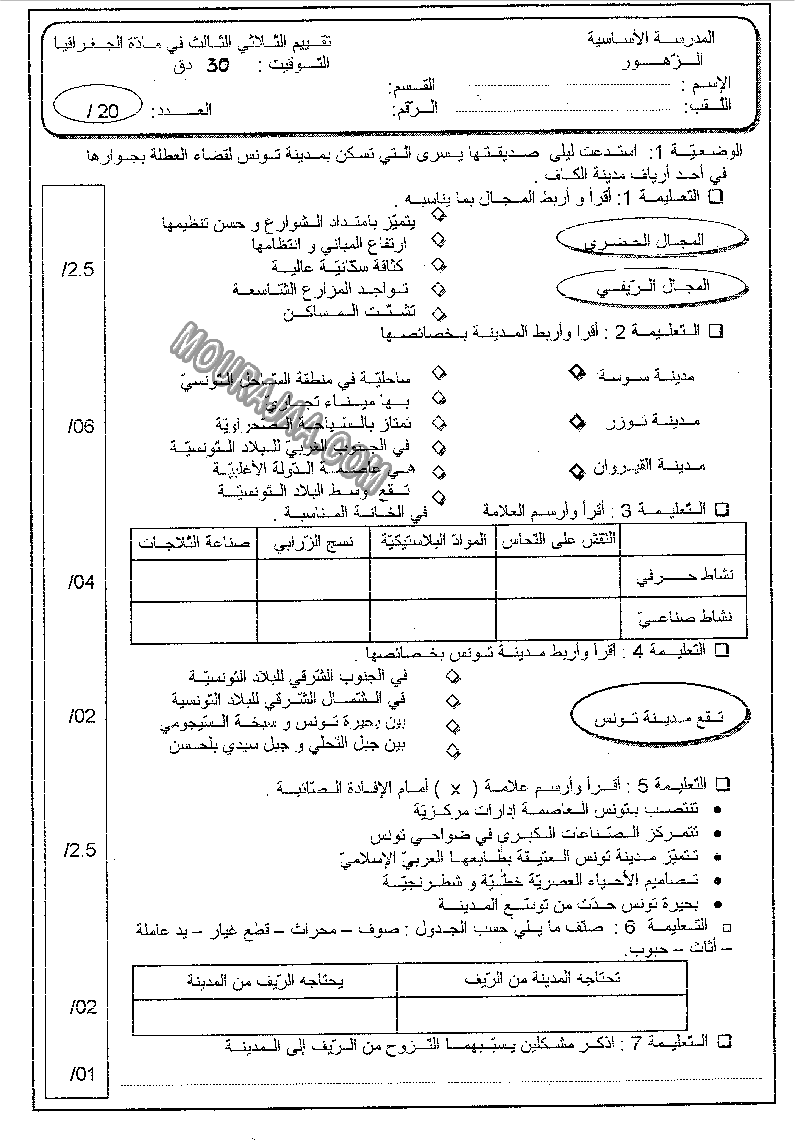 المدرسة الأساسية
الزهور
تقييم الثلاثي الثالث في مادة الجغرافيا
التوقيت : 30 دق
الإسم : القسم:
اللقب: الرقم: العـدد: /20
الوضعيّة 1: استدعت ليلى صديقتها يسرى التي تسكن بمدينة تونس لقضاء العطلة بجوارها
في أحد أرياف مدينة الكاف .
التعليمة 1: أقرأ و أربط المجال بما يناسبه .
المجال الحضري
المجال الريفي
يتميّز بامتداد الشوارع و حسن تنظيمها
ارتفاع المباني و انتظامها
كثافة سكّانيّة عالية
تواجد المزارع الشاسعة
تشتّت المساكن
/2.5
التعليمة 2 : أقرأ وأربط المدينة بخصائصها
مدينة سوسة
مدينة توزر
مدينة القيروان
ساحليّة في منطقة الساحل التونسيّ
بها ميناء تجاريّ
تمتاز بالسياحة الصحراويّة
في الجنوب الغربيّ للبلاد التونسيّة
هي عاصمة الدولة الأغلبيّة
تقع وسط البلاد التونسيّة
/06
التعليمة 3 : أقرأ وأرسم العلامة في الخانة المناسبة .
النقش على النّحاس
الموادّ البلاستيكيّة
نسج الزّرابي
صناعة الثلاجات
نشاط حرفي
نشاط صناعيّ
/04
التعليمة 4 : أقرأ وأربط مدينة تونس بخصائصها .
تقع مدينة تونس
في الجنوب الشرقي للبلاد التونسيّة
في الشمال الشرقي للبلاد التونسية
بين بحيرة تونس و سبخة السيجومي
بين جبل النحلي و جبل سيدي بلحسن
/02
التعليمة 5 : أقرأ وأرسم علامة ( x ) أمام الإفادة الصّائبة .
تنتصب بتونس العاصمة إدارات مركزيّة
تتمركز الصّناعات الكبرى في ضواحي تونس
تتميّز مدينة تونس العتيقة بطابعها العربيّ الإسلاميّ
تصاميم الأحياء العصريّة خطيّة و شطرنجيّة
بحيرة تونس حدّت من توسّع المدينة
/2.5
التعليمة 6 : صنّف ما يلي حسب الجدول : صوف – محراث – قطع غيار – يد عاملة
– أثاث – حبوب.
تحتاجه المدينة من الرّيف
يحتاجه الريف من المدينة
/02
التعليمة 7 : اذكر مشكلين يسبّبهما النّزوح من الرّيف إلى المدينة
/01
MOURAJAA.COM